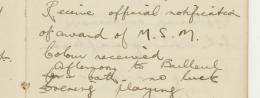 Receive official notification
of award of M.S.M.
Colour received
Afternoon to Bailleul
for a bath - no luck
Evening playing